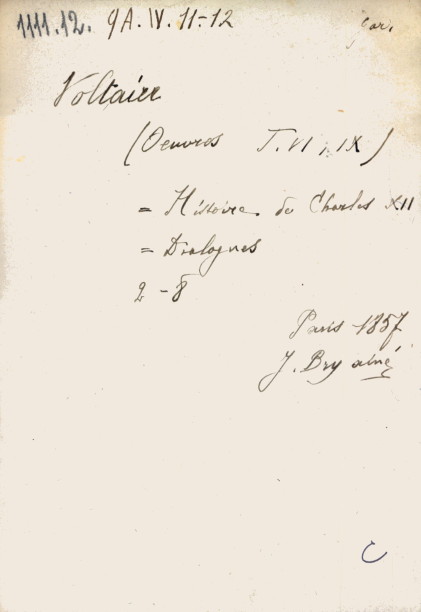 1111.12. 9A.IV.11-12
Voltaire
(Oeuvres T.VI, IX)
= Histoire de Charles XII
= Dialogues
2 - 8
Paris 1857
J. Bry aîné
C